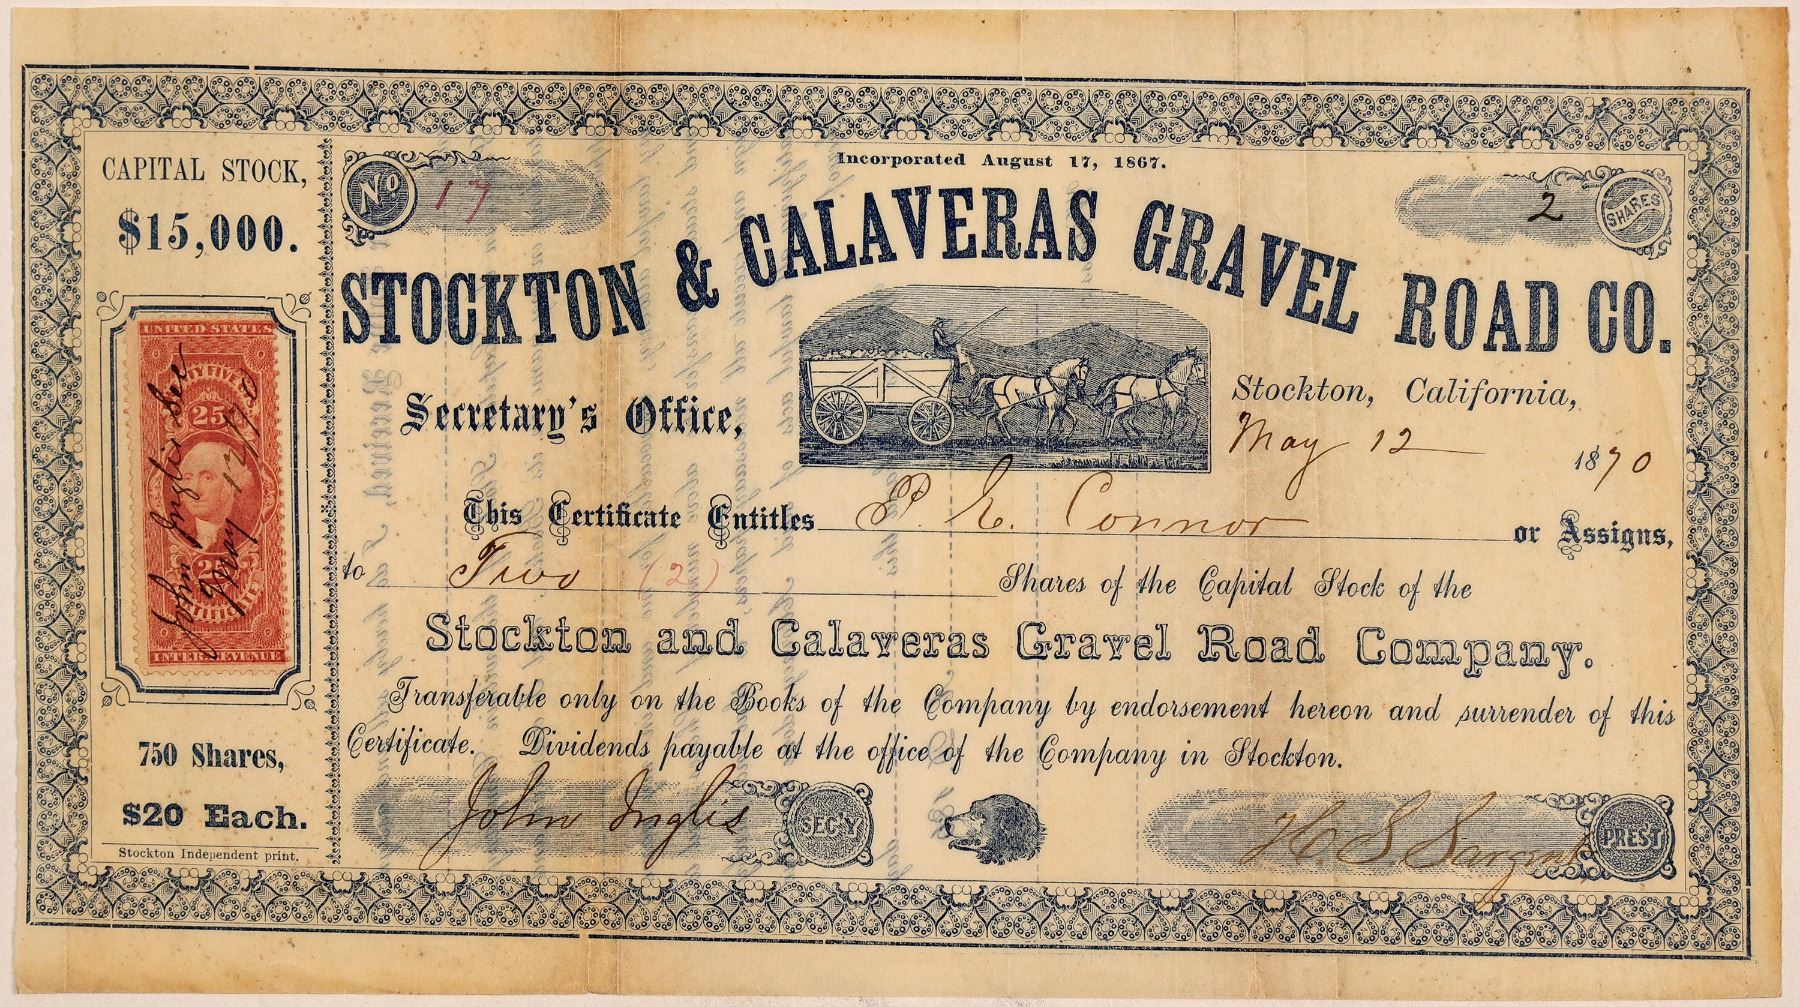 Incorporated August 17, 1867.
CAPITAL STOCK,
$15,000.
No 17
2 SHARES
STOCKTON & CALAVERAS GRAVEL ROAD CO.
Secretary's Office,
Stockton, California,
May 12 1870
This Certificate Entitles P. E. Connor or Assigns,
to Two (2) Shares of the Capital Stock of the
Stockton and Calaveras Gravel Road Company.
Transferable only on the Books of the Company by endorsement hereon and surrender of this
Certificate. Dividends payable at the office of the Company in Stockton.
John Inglis SEC'Y
H. S. Sargent PREST
UNITED STATES
25
INTER. REVENUE
John Inglis Sec
May 12/70
750 Shares,
$20 Each.
Stockton Independent print.